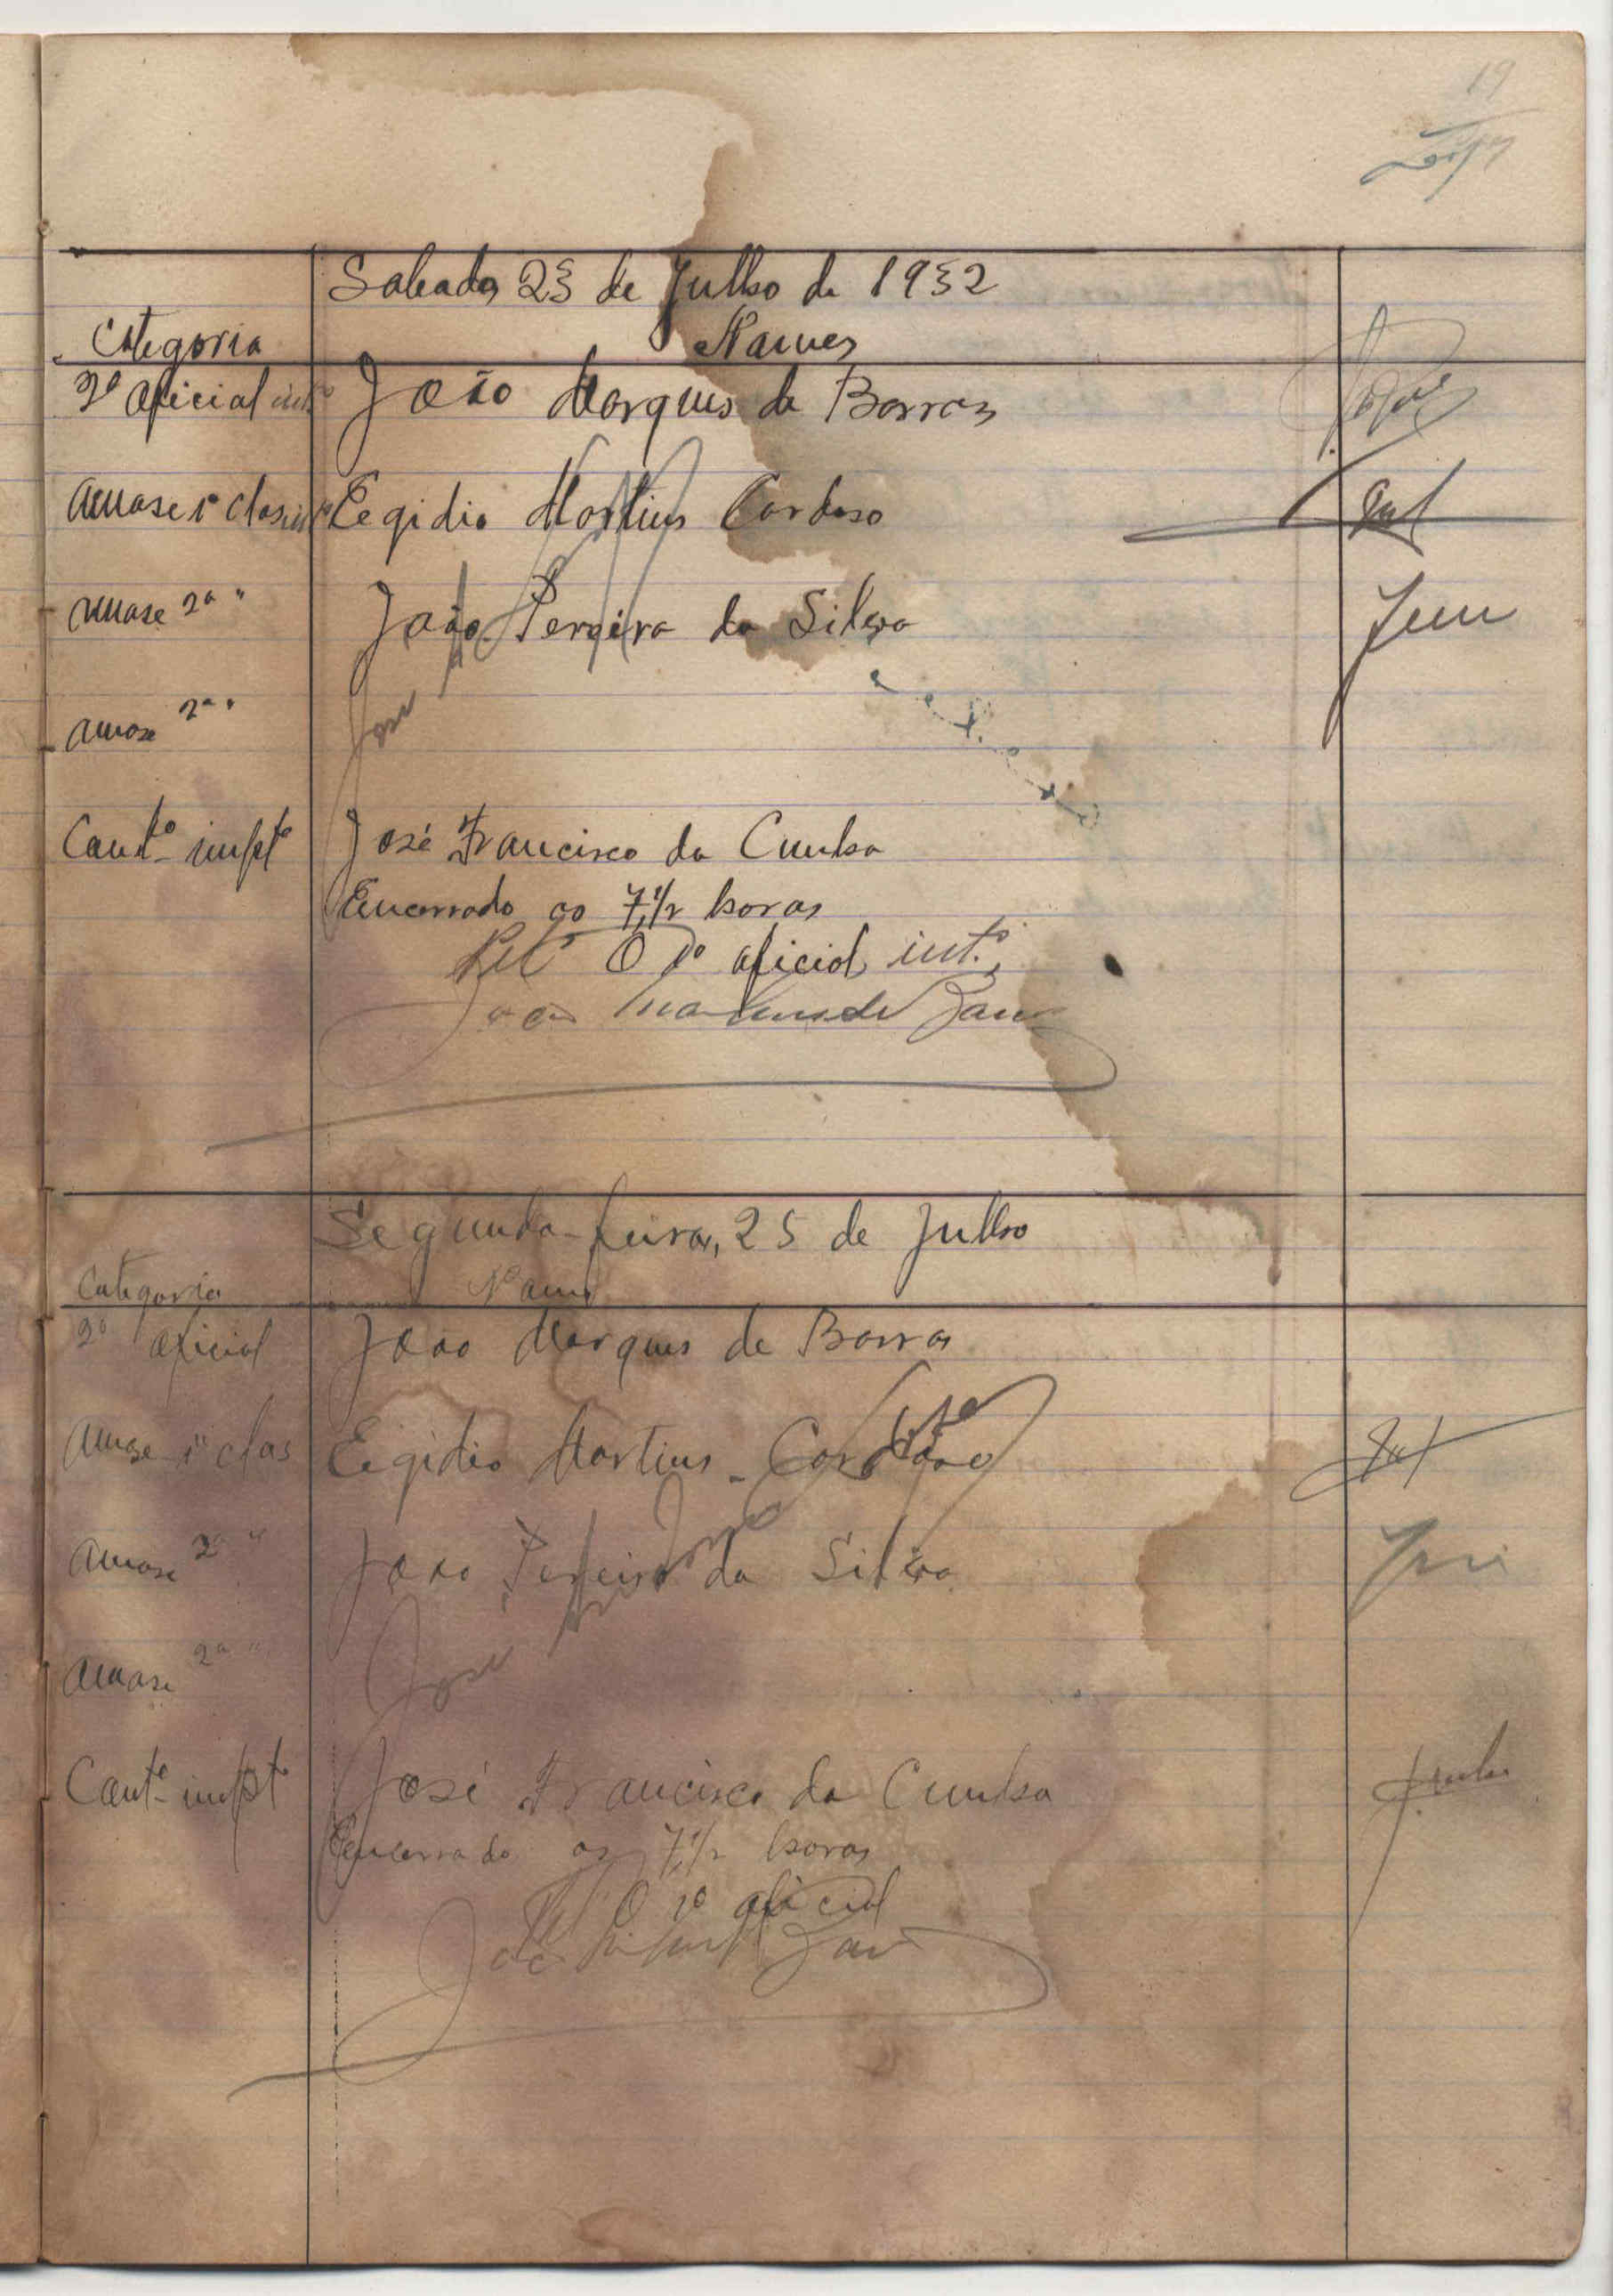 19
Sabado, 23 de Julho de 1932
Categoria Nomes
2º Oficial intº João Marques de Barros
Amase 1ª clas Egidio Martins Cardoso
Amase 2ª " João Pereira da Silva
Amase 2ª " José
Contº impt José Francisco da Cunha
Encerrado as 7,1/2 horas
O 2º oficial intº
João Marques de Barros
Segunda-feira, 25 de Julho
Categoria Nome
2º oficial João Marques de Barros
Amase 1ª clas Egidio Martins Cardoso
Amase 2ª " João Pereira da Silva
Amase 2ª " José
Contº impt José Francisco da Cunha
Encerrado as 7,1/2 horas
O 2º oficial